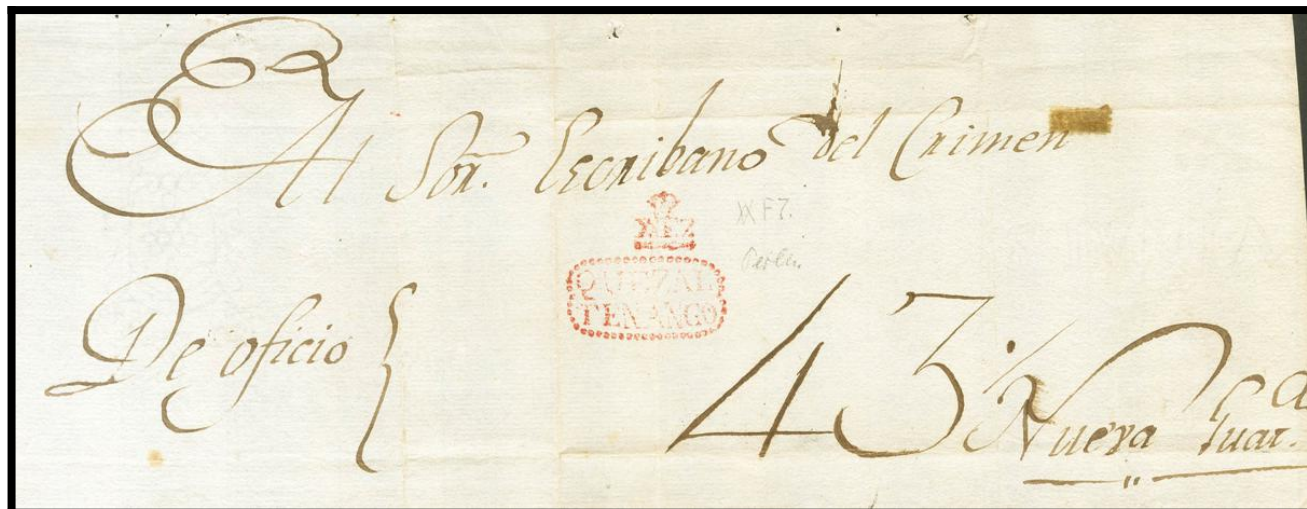 Al Sor. Escribano del Crimen
XF7.
QUEZAL
TENANGO
De oficio
43
Nueva Guat.a